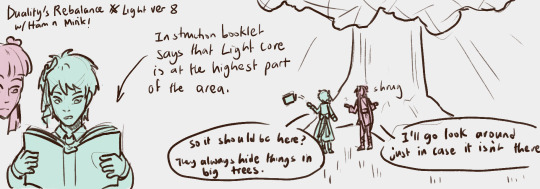 Duality's Rebalance Light ver 8
w/ Ham n Mink!
Instruction booklet
says that Light Core
is at the highest part
of the area.
shrug
So it should be here?
They always hide things in
big trees.
I'll go look around
just in case it isn't there